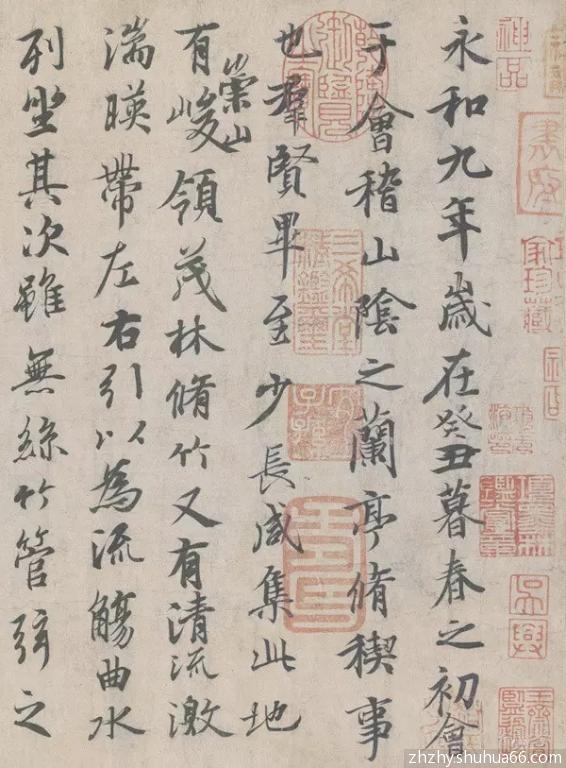 永和九年歲在癸丑暮春之初會
于會稽山陰之蘭亭脩稧事
也羣賢畢至少長咸集此地
有崇山峻領茂林脩竹又有清流激
湍暎帶左右引以為流觴曲水
列坐其次雖無絲竹管弦之
神品
珍藏
吳興
三希堂精鑑璽
宜子孫
zhzhy.shuhua66.com